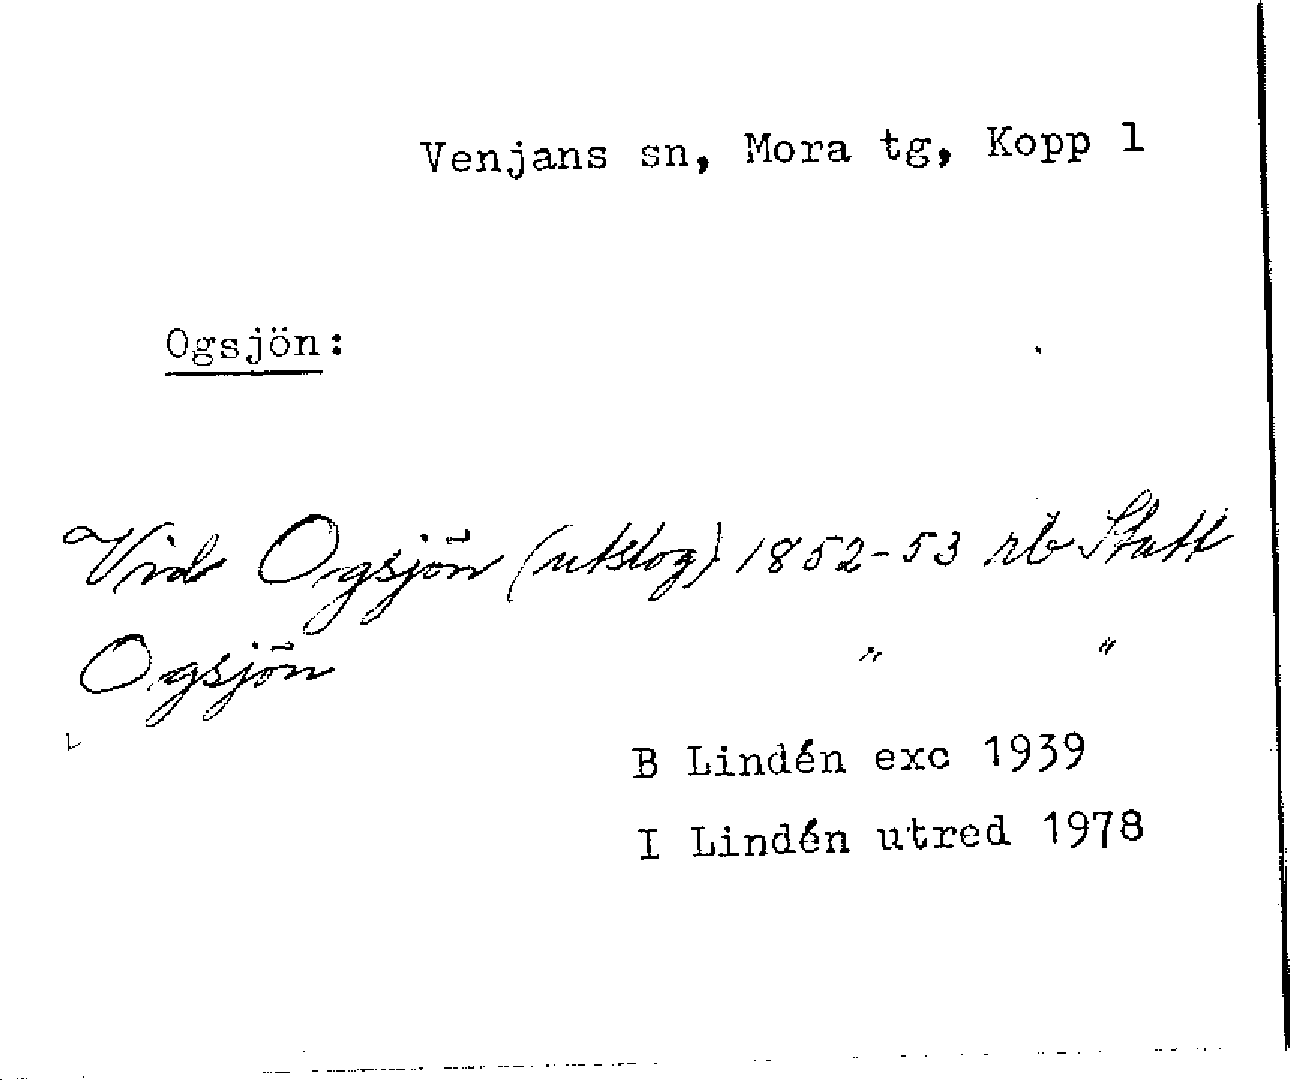 Venjans sn, Mora tg, Kopp l
Ogsjön:
Vid Ogsjön (utslog) 1852-53 rb Statt
Ogsjön " "
B Lindén exc 1939
I Lindén utred 1978